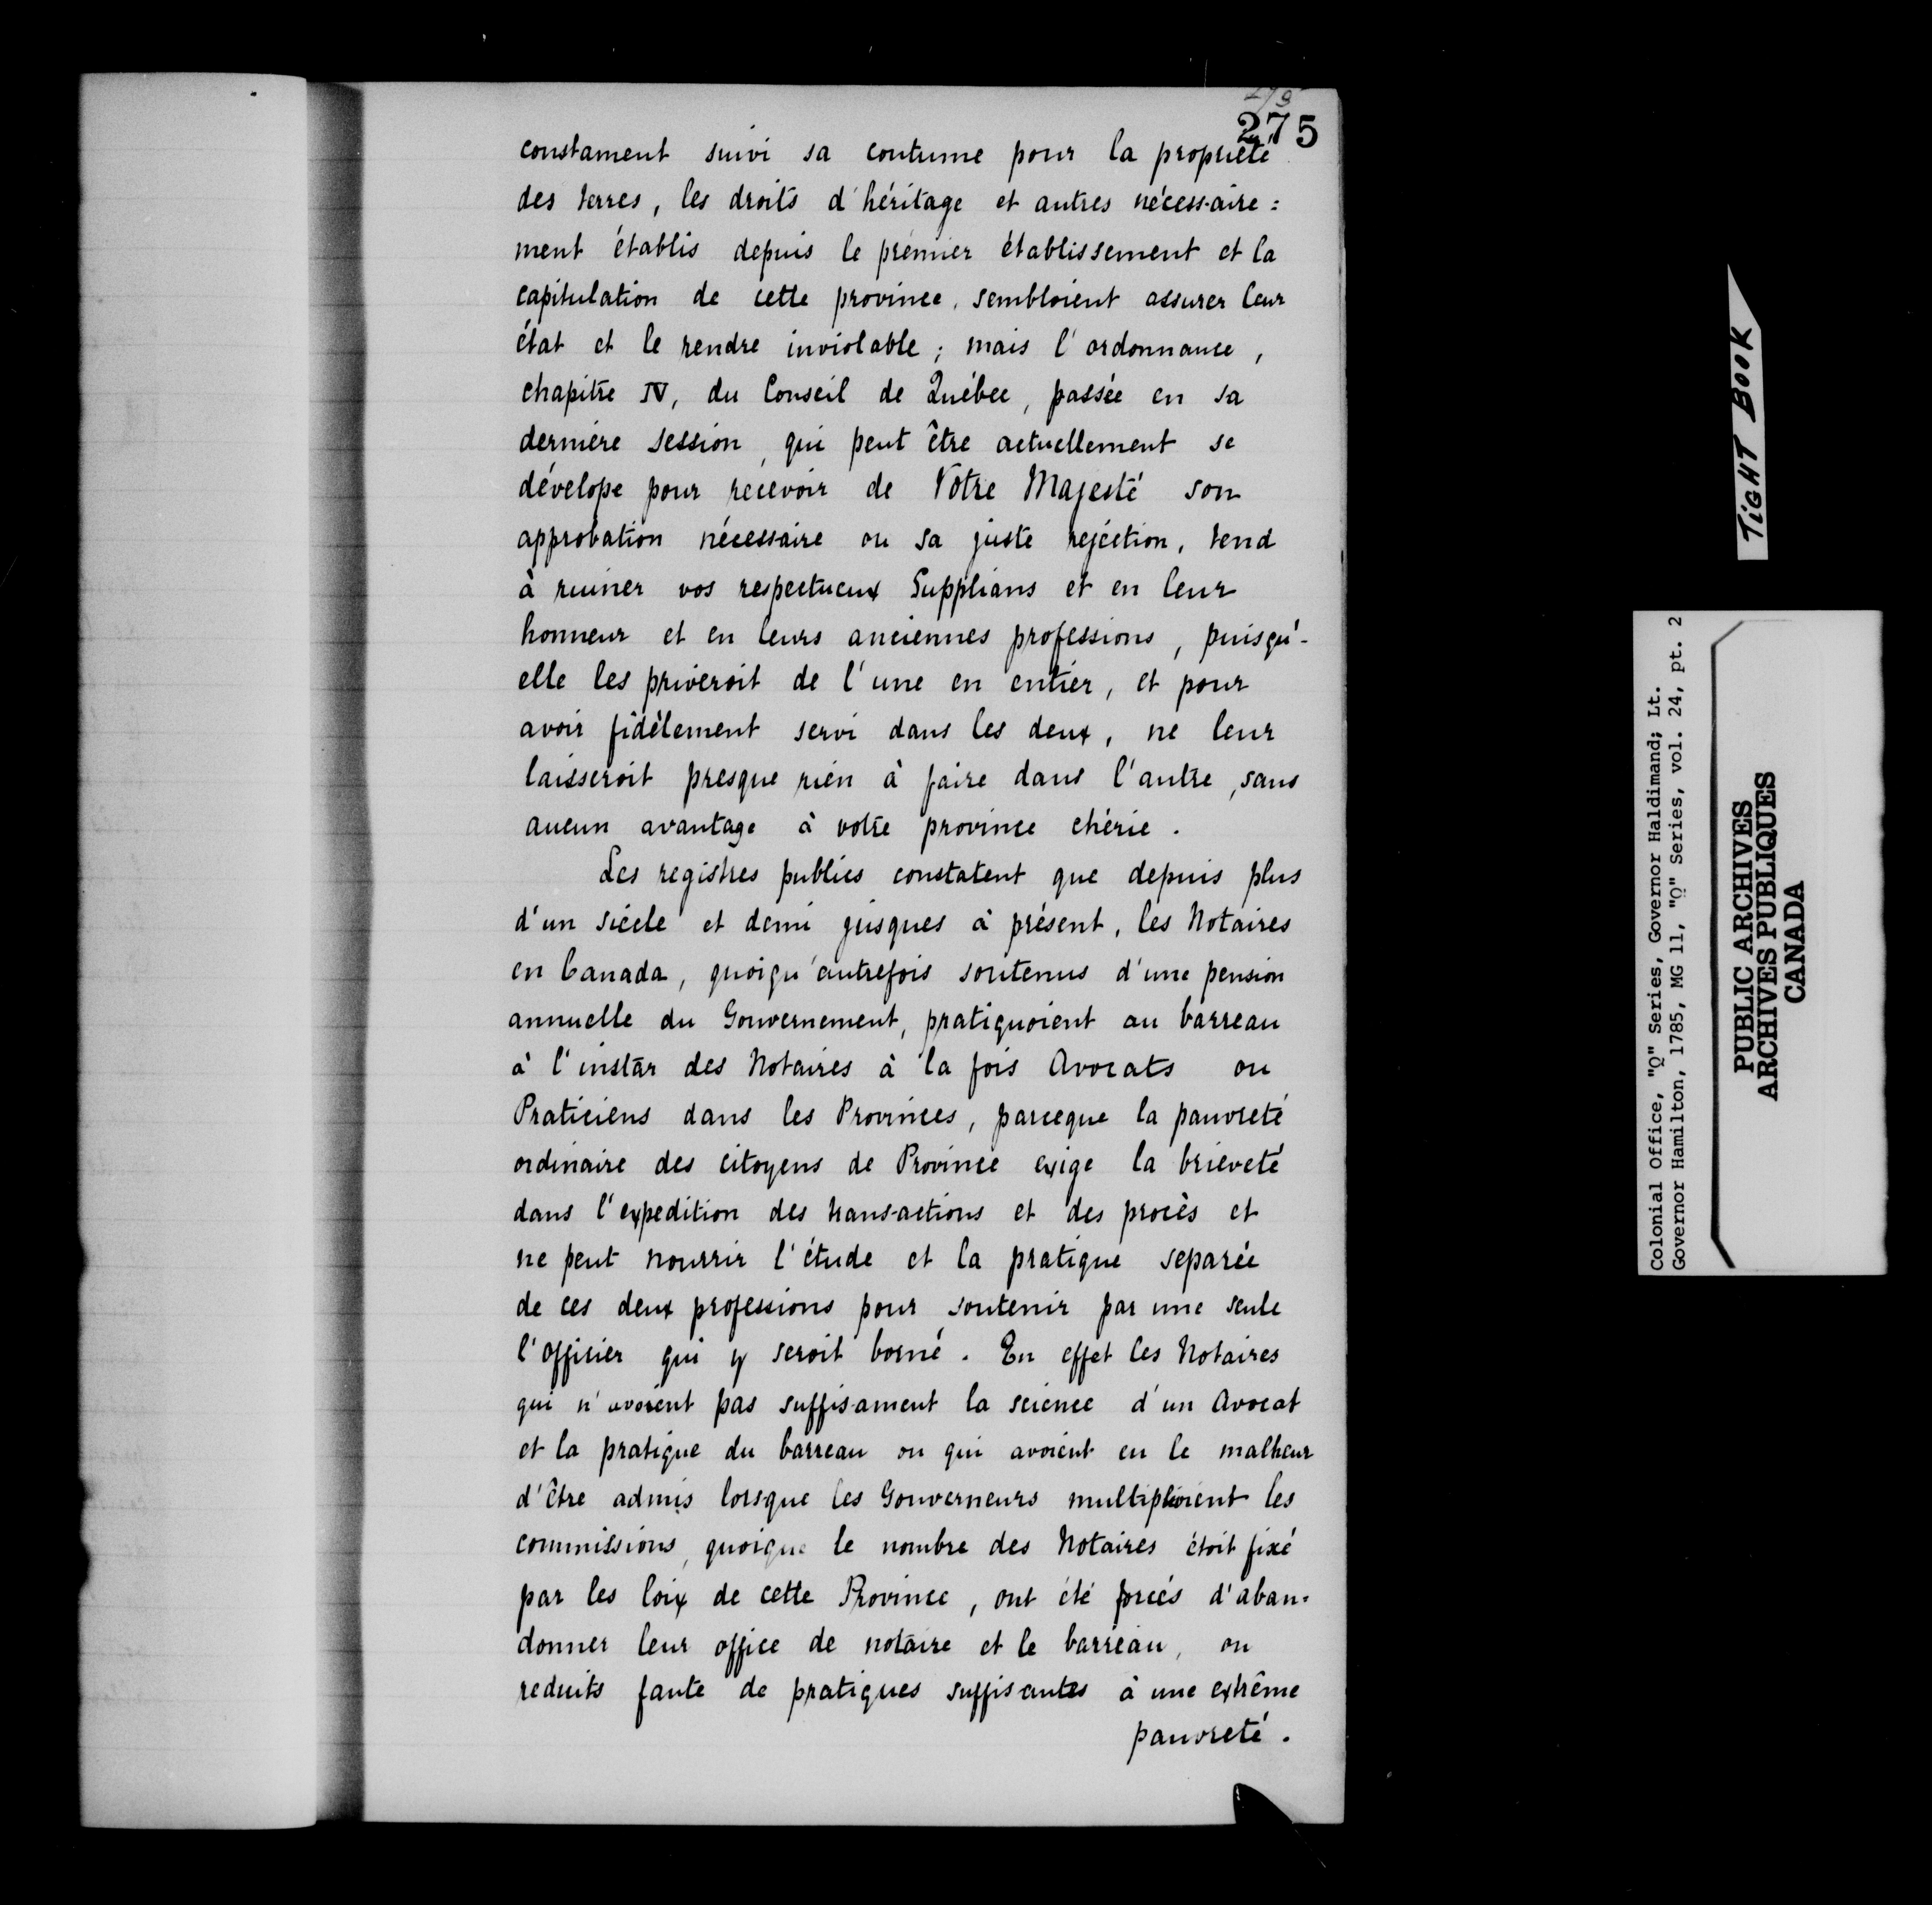 275
275
constament suivi sa coutume pour la propriété
des terres, les droits d'héritage et autres nécessaire=
ment établis depuis le premier établissement et la
capitulation de cette province, sembloient assurer leur
état et le rendre inviolable ; mais l'ordonnance,
chapitre IV, du Conseil de Québec, passée en sa
dernière session, qui peut être actuellement se
dévelope pour recevoir de Votre Majesté son
approbation nécessaire ou sa juste rejéction, tend
à ruiner vos respectueux Supplians et en leur
honneur et en leurs anciennes professions, puisqu'-
elle les priveroit de l'une en entier, et pour
avoir fidèlement servi dans les deux, ne leur
laisseroit presque rien à faire dans l'autre, sans
aucun avantage à votre province chérie.
Les registres publics constatent que depuis plus
d'un siècle et demi jusques à présent, les Notaires
en Canada, quoiqu'autrefois soutenus d'une pension
annuelle du Gouvernement, pratiquoient au barreau
à l'instar des Notaires à la fois Avocats ou
Praticiens dans les Provinces, parceque la pauvreté
ordinaire des citoyens de Province exige la brièveté
dans l'expedition des transactions et des procès et
ne peut nourrir l'étude et la pratique separée
de ces deux professions pour soutenir par une seule
l'officier qui y seroit borné. En effet les Notaires
qui n'avoient pas suffisament la science d'un Avocat
et la pratique du barreau ou qui avoient eu le malheur
d'être admis lorsque les Gouverneurs multiplioient les
commissions, quoique le nombre des Notaires étoit fixé
par les loix de cette Province, ont été forcés d'aban-
donner leur office de notaire et le barreau, ou
reduits faute de pratiques suffisantes à une extrême
pauvreté.
TIGHT BOOK
Colonial Office, "Q" Series, Governor Haldimand; Lt.
Governor Hamilton, 1785, MG 11, "Q" Series, vol. 24, pt. 2
PUBLIC ARCHIVES
ARCHIVES PUBLIQUES
CANADA